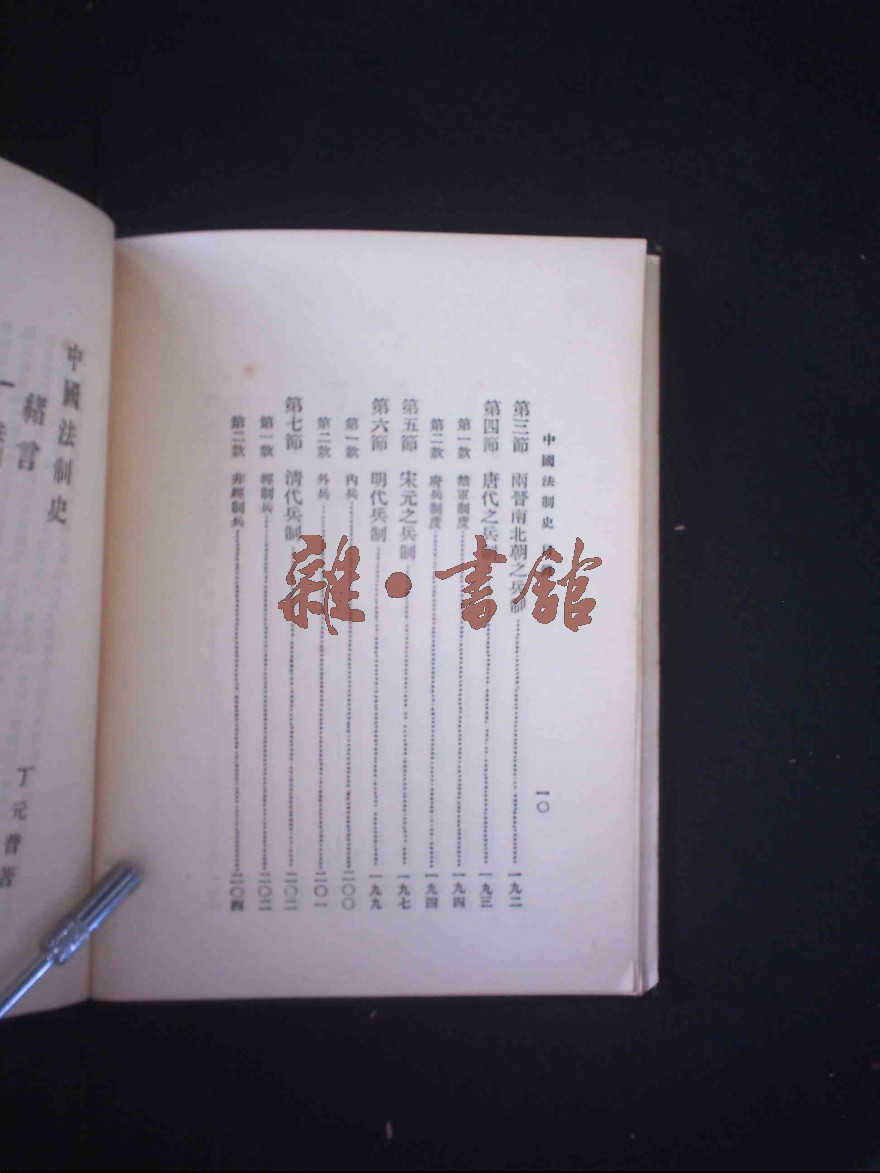 中國法制史
一〇
第三節 兩晉南北朝之兵制……一九二
第四節 唐代之兵……一九三
第一款 ……軍制度……一九四
第二款 府兵制度……一九四
第五節 宋元之兵制……一九七
第六節 明代兵制……一九九
第一款 內兵……二〇〇
第二款 外兵……二〇一
第七節 清代兵制……二〇二
第一款 經制兵……二〇二
第二款 非經制兵……二〇四
中國法制史
丁元普著
緒言
一
雜·書館